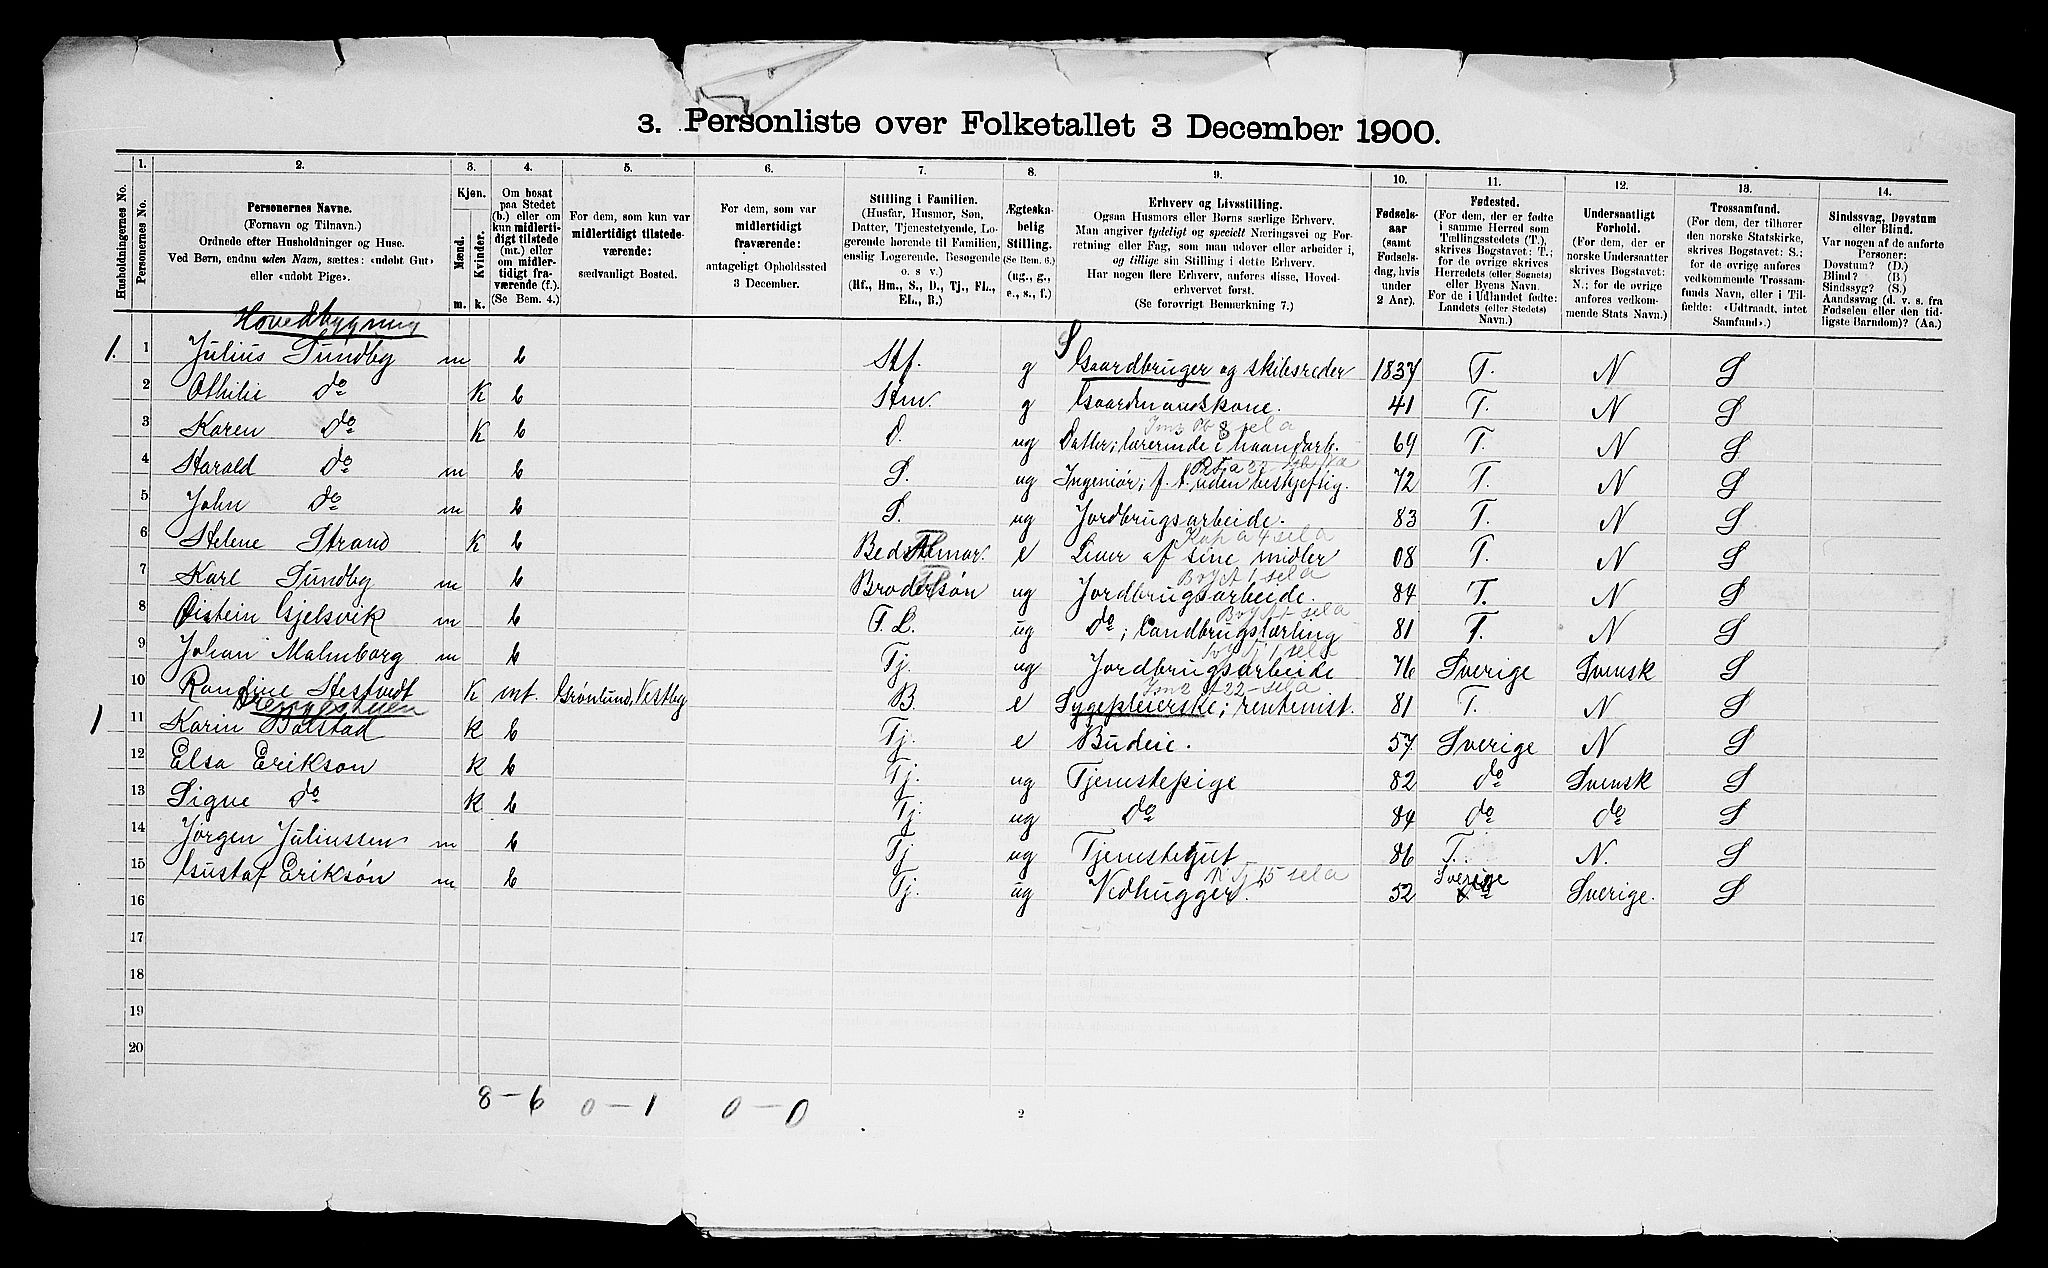 3. Personliste over Folketallet 3 December 1900.
Husholdningernes No.
1. Personernes No.
2. Personernes Navne.
(Fornavn og Tilnavn.)
Ordnede efter Husholdninger og Huse.
Ved Børn, endnu uden Navn, sættes: «udøbt Gut»
eller «udøbt Pige».
3. Kjøn.
Mænd. Kvinder.
m. k.
4. Om bosat
paa Stedet
(b.) eller om
kun midlertidigt
tilstede
(mt.) eller
om midlertidigt
fraværende (f.).
(Se Bem. 4.)
5. For dem, som kun var
midlertidigt tilstedeværende:
sædvanligt Bosted.
6. For dem, som var
midlertidigt
fraværende:
antageligt Opholdssted
3 December.
7. Stilling i Familien.
(Husfar, Husmor, Søn,
Datter, Tjenestetyende, Logerende
hørende til Familien,
enslig Logerende, Besøgende
o. s. v.)
(Hf., Hm., S., D., Tj., FL.,
EL., B.)
8. Ægteskabelig
Stilling.
(Se Bem. 6.)
(ug., g.,
e., s., f.)
9. Erhverv og Livsstilling.
Ogsaa Husmors eller Børns særlige Erhverv.
Man angiver tydeligt og specielt Næringsvei og Forretning
eller Fag, som man udøver eller arbeider i,
og tillige sin Stilling i dette Erhverv.
Har nogen flere Erhverv, anføres disse, Hovederhvervet
først.
(Se forøvrigt Bemærkning 7.)
10. Fødselsaar
(samt
Fødselsdag,
hvis
under
2 Aar).
11. Fødested.
(For dem, der er fødte
i samme Herred som
Tællingsstedets (T.),
skrives Bogstavet: T.;
for de øvrige skrives
Herredets (eller Sognets)
eller Byens Navn.
For de i Udlandet fødte:
Landets (eller Stedets)
Navn.)
12. Undersaatligt
Forhold.
(For dem, der er
norske Undersaatter
skrives Bogstavet:
N.; for de øvrige
anføres vedkommende
Stats Navn.)
13. Trossamfund.
(For dem, der tilhører
den norske Statskirke,
skrives Bogstavet: S.;
for de øvrige anføres
vedkommende Trossamfunds
Navn, eller i Tilfælde:
«Udtraadt, intet
Samfund».)
14. Sindssvag, Døvstum
eller Blind.
Var nogen af de anførte
Personer:
Døvstum? (D.)
Blind? (B.)
Sindssyg? (S.)
Aandssvag (d. v. s. fra
Fødselen eller den tidligste
Barndom)? (Aa.)
Hovedbygning
1. 1 Julius Sundby m b Hf. g Gaardbruger og skibsreder 1837 T. N S
2 Othilie do K b Hm. g Gaardmandskone. 41 T. N S
3 Karen do K b D. ug Datter; lærerinde i haandarb. 69 T. N S
4 Harald do m b S. ug Ingeniør; f. t. uden beskjeftig. 72 T. N S
5 John do m b S. ug Jordbrugsarbeide. 83 T. N S
6 Helene Strand K b Bedstemor. e Lever af sine midler 08 T. N S
7 Karl Sundby m b Brodersøn ug Jordbrugsarbeide. 84 T. N S
8 Øistein Gjelsvik m b F. L. ug do; Landbrugslærling 81 T. N S
9 Johan Malmborg m b Tj. ug Jordbrugsarbeide 76 Sverige Svensk S
10 Randine Hestvedt K mt. Grønlund, Vestby B. e Sygepleierske; rentenist. 81 T. N S
1 11 Karin Bolstad K b Tj. e Budeie. 57 Sverige N S
12 Elsa Erikson K b Tj. ug Tjenstepige 82 do Svensk S
13 Signe do K b Tj. ug do 84 do do S
14 Jørgen Juliussen m b Tj. ug Tjenstegut 86 T. N. S
15 Gustaf Eriksøn m b Tj. ug Vedhugger. 52 Sverige Sverige. S
16
17
18
19
20
8 – 6 0 – 1 0 – 0
2